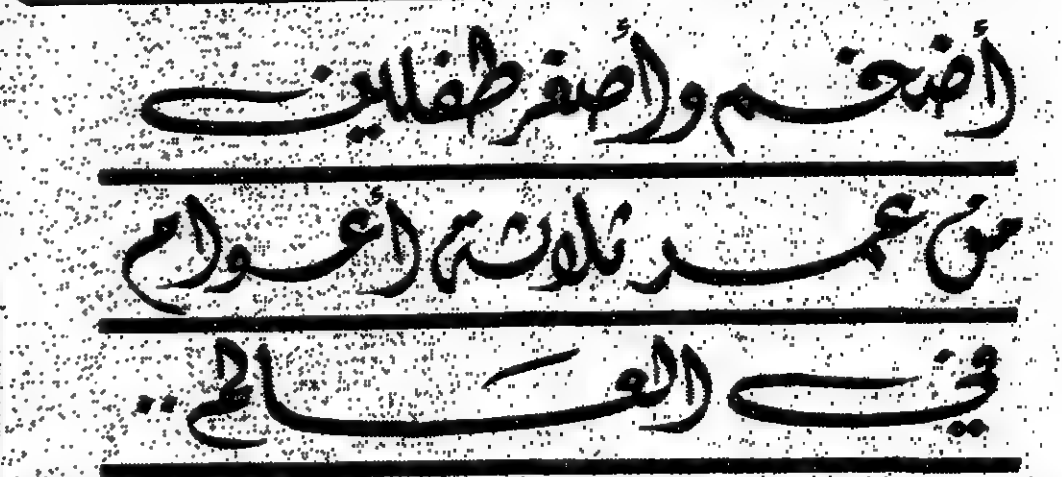 أضخم وأصغر طفلين
من عمر ثلاثة أعوام
في العالم ..